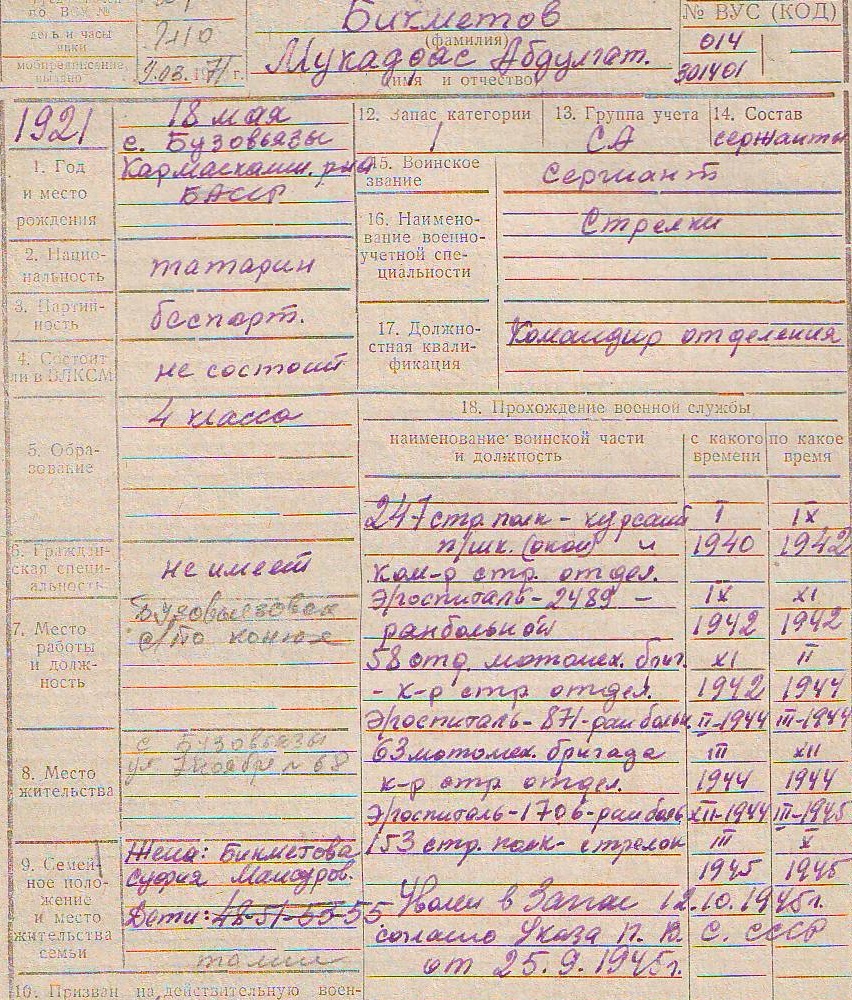 по ВУС №
день и часы
явки 9-00
мобпредписание
выдано 9.03.1971 г.
Бикметов
(фамилия)
Мукадяс Абдулгат.
(имя и отчество)
№ ВУС (КОД)
014
301401
1921
1. Год
и место
рождения
18 мая
с. Бузовьязы
Кармаскалин. р-на
БАССР
2. Нацио-
нальность
татарин
3. Партий-
ность
беспарт.
4. Состоит
ли в ВЛКСМ
не состоит
5. Обра-
зование
4 класса
6. Граждан-
ская специ-
альность
не имеет
7. Место
работы
и долж-
ность
Бузовьязовск
с/по конюх
8. Место
жительства
с Бузовьязы
ул 7 ноября № 68
9. Семей-
ное поло-
жение
и место
жительства
семьи
Жена: Бикметова
Суфия Мансуров.
Дети: 48-51-53-55
10. Призван на действительную воен-
12. Запас категории
1
13. Группа учета
СА
14. Состав
сержанты
15. Воинское
звание
Сержант
16. Наимено-
вание военно-
учетной спе-
циальности
Стрелки
17. Должно-
стная квали-
фикация
Командир отделения
18. Прохождение военной службы
наименование воинской части
и должность
с какого
времени
по какое
время
247 стр. полк - курсант I IX
п/шк. и 1940 1942
ком-р стр. отдел.
Э/госпиталь - 2489 - IX XI
ранбольной 1942 1942
58 отд. мотомех. бриг. XI II
- к-р стр отдел. 1942 1944
Э/госпиталь - 871 - ранбольн II-1944 III-1944
63 мотомех. бригада III XII
к-р стр отдел. 1944 1944
Э/госпиталь - 1706 - ранболь XII-1944 III-1945
153 стр. полк - стрелок III X
1945 1945
Уволен в Запас 12.10.1945г.
согласно Указа П. В. С. СССР
от 25.9.1945г.